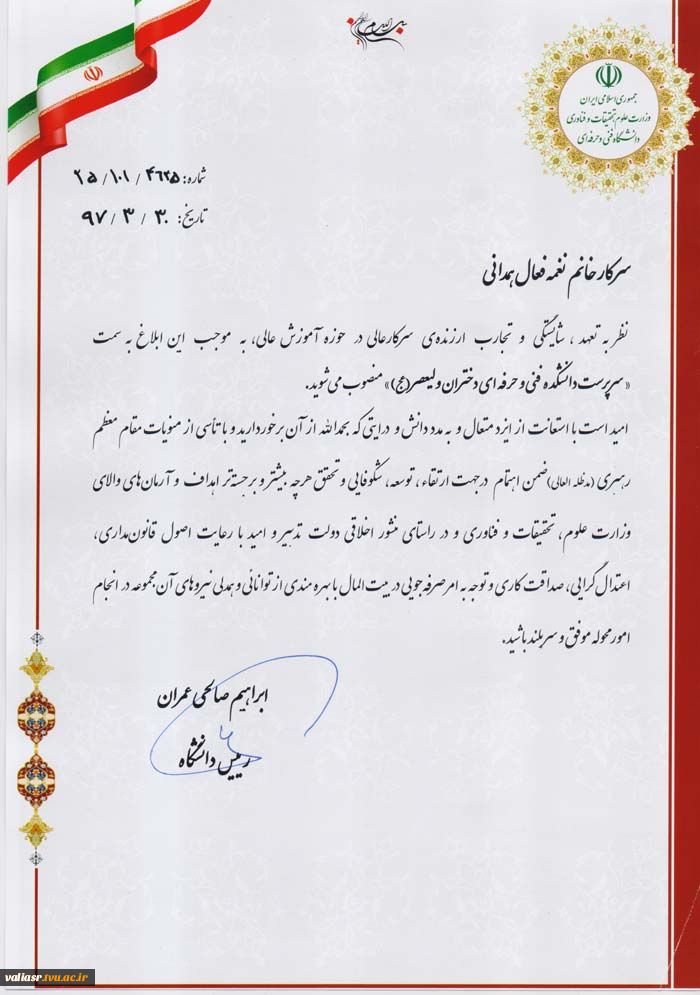 جمهوری اسلامی ایران
وزارت علوم، تحقیقات و فناوری
دانشگاه فنی و حرفه ای
شماره: ۲۵/۱۰۱/۴۶۲۵
تاریخ: ۹۷/۳/۳۰
سرکار خانم نغمه فعال همدانی
نظر به تعهد ، شایستگی و تجارب ارزنده‌ی سرکارعالی در حوزه آموزش عالی، به موجب این ابلاغ به سمت
«سرپرست دانشکده فنی و حرفه ای دختران ولیعصر(عج)» منصوب می‌شوید.
امید است با استعانت از ایزد متعال و به مدد دانش و درایتی که بحمدالله از آن برخوردارید و با تأسی از منویات مقام معظم
رهبری (مدظله العالی) ضمن اهتمام درجهت ارتقاء ، توسعه، شکوفایی و تحقق هرچه بیشتر و برجسته‌تر اهداف و آرمان‌های والای
وزارت علوم، تحقیقات و فناوری و در راستای منشور اخلاقی دولت تدبیر و امید با رعایت اصول قانون‌مداری،
اعتدال‌گرایی، صداقت کاری و توجه به امر صرفه‌جویی در بیت المال با بهره مندی از توانائی و همدلی نیروهای آن مجموعه در انجام
امور محوله موفق و سربلند باشید.
ابراهیم صالحی عمران
رییس دانشگاه
valiasr.tvu.ac.ir